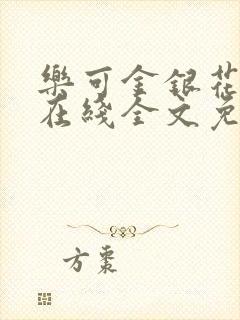 樂可金銀花
在綫全文免
方棗